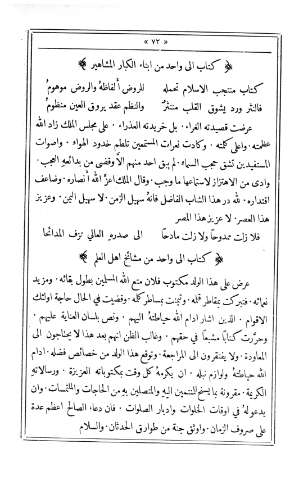 ﴿ ٧٢ ﴾
﴿ كتاب الى واحد من ابناء الكبار المشاهير ﴾
كتاب منتجب الاسلام تحمله للروض ألفاظه والروض موهوم
فالنثر ورد يشوق القلب منتثر والنظم عقد يروق العين منظوم
عرضت قصيدته الغراء . بل خريدته العذراء . على مجلس الملك زاد الله
عظمته . واعلى كلمته . وكادت نعرات المستمعين تلطم خدود الهواء . واصوات
المستفيدين تشق جيب السماء . لم يبق احد منهم الا وقضى من بدائعه العجب .
وادى من الاهتزاز لاستماعها ما وجب . وقال الملك اعز الله أنصاره . وضاعف
اقتداره . لله در هذا الشاب الفاضل فانه سهيل الزمن . لا سهيل اليمن . وعزيز
هذا العصر . لا عزيز هذا المصر
فلا زلت ممدوحا ولا زلت مادحا الى صدره العالي تزف المدائحا
﴿ كتاب الى واحد من مشائخ اهل العلم ﴾
عرض على هذا الولد مكتوب فلان متع الله المسلمين بطول بقائه . ومزيد
نعمائه . فتبركت بمقاطر قلمه . وتيمنت بمساطر كلمه . وقضيت في الحال حاجة اولئك
الاقوام . الذين اشار ادام الله حياطته اليهم . ونص بلسان العناية عليهم .
وحررت كتابا مشبعا في حقهم . وغالب الظن انهم بعد هذا لا يحتاجون الى
المعاودة . ولا يفتقرون الى المراجعة . وتوقع هذا الولد من خصائص فضله . ادام
الله حياطته ولوازم نبله . ان يكرمه كل وقت بمكتوباته العزيزة . ورسالاته
الكريمة . مقرونة بما يسنح للمنتمين اليه والمتصلين به من الحاجات والملتمسات . وان
يدعو له في اوقات الخلوات وادبار الصلوات . فان دعاء الصالح اعظم عدة
على صروف الزمان . واوثق جنة من طوارق الحدثان . والسلام